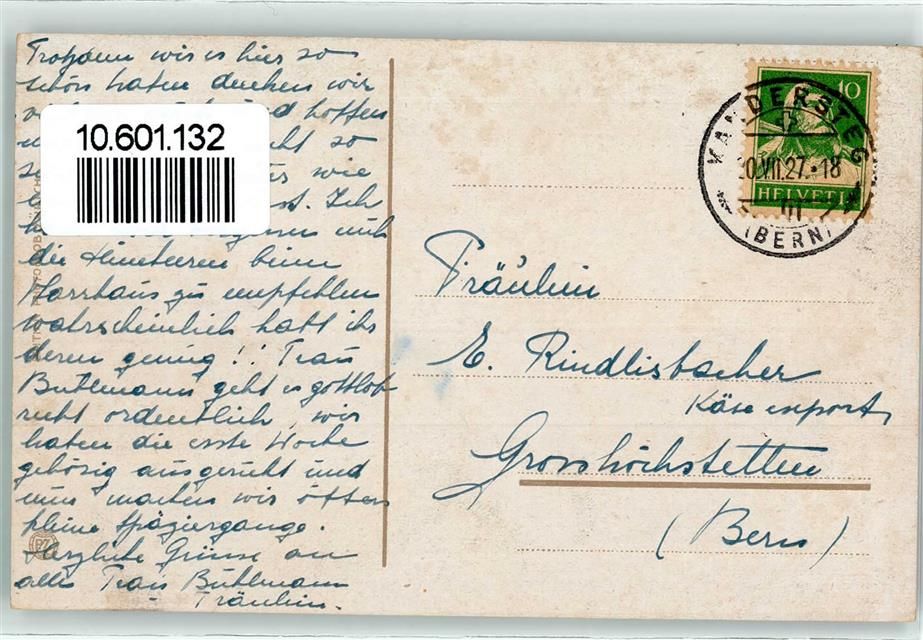 Trotzdem wir es hier so
schön haben denken wir
hoffen
so
10.601.132
wie
Ich
die Himbeeren beim
Pfarrhaus zu empfehlen
wahrscheinlich habt ihr
deren genug!! Frau
Bühlmann geht es gottlob
recht ordentlich, wir
haben die erste Woche
gehörig ausgeruht und
nun machen wir öfters
kleine Spaziergänge.
Herzliche Grüsse an
alle Frau Bühlmann
Fräulein.
10
HELVETIA
KANDERSTEG
20.VII.27.-18
III
(BERN)
Fräulein
E. Rindlisbacher
Käseexport,
Grosshöchstetten
(Bern)